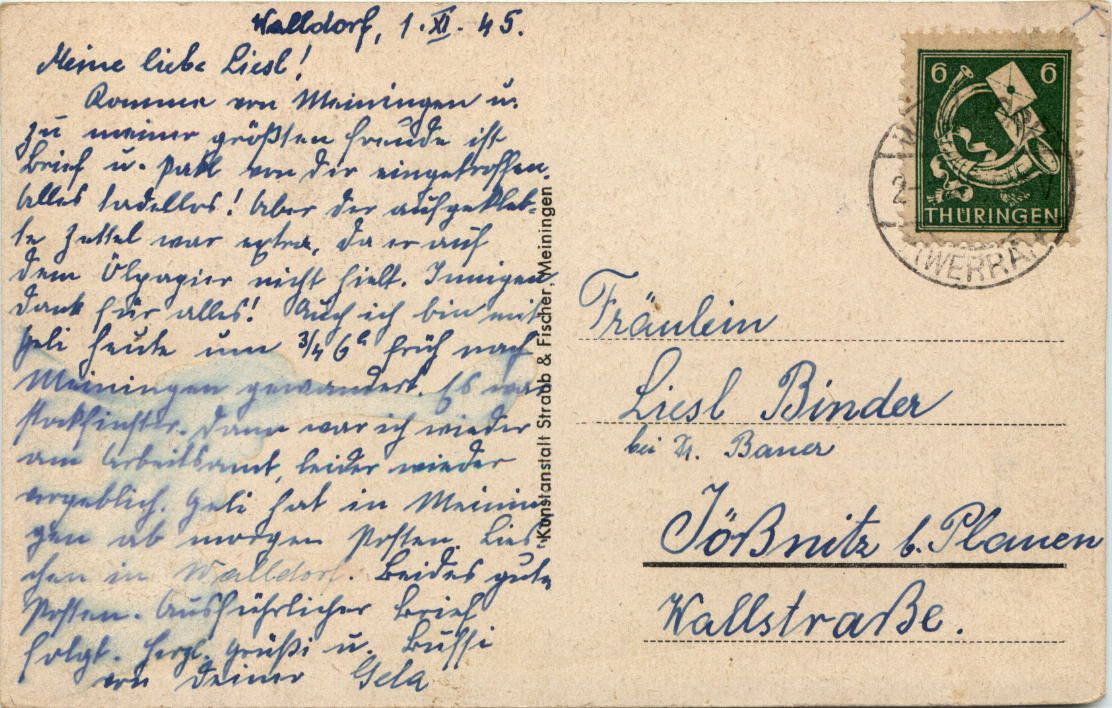 Walldorf, 1. XI. 45.
Meine liebe Liesl!
Komme von Meiningen u.
zu meiner größten Freude ist
Brief u. Pakl von Dir eingetroffen.
Alles tadellos! Aber der aufgekleb-
te Zettel war extra, da er auf
dem Ölpapier nicht hielt. Innigen
Dank für alles! Auch ich bin mit
Heli heute um 3/4 6h früh nach
Meiningen gewandert. Es war
stockfinster. Dann war ich wieder
am Arbeitsamt, leider wieder
vergeblich. Heli hat in Meinin
gen ab morgen Posten. Lies
chen in Walldorf. Beides gute
Posten. Ausführlicher Brief
folgt. Herzl. Grüße u. Bussi
von Deiner Gela
Kunstanstalt Straub & Fischer, Meiningen
6 6
THÜRINGEN
(WERRA)
Fräulein
Liesl Binder
bei Dr. Bauer
Jößnitz b. Plauen
Wallstraße.